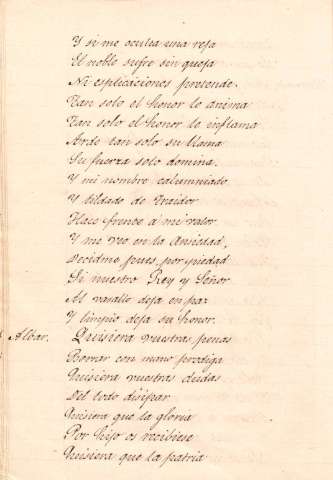 Y si me oculta una reja
El noble sufre sin queja
Ni esplicaciones pretende.
Tan solo el honor lo anima
Tan solo el honor lo inflama
Arde tan solo su llama
Su fuerza solo domina.
Y mi nombre calumniado
Y tildado de traidor
Hace frente á mi valor
Y me veo en la Ansiedad,
Decidme pues, por piedad
Si nuestro Rey y Señor
Al vasallo deja en paz
Y limpio deja su honor.
Albar. Quisiera vuestras penas
Borrar con mano prodiga
Quisiera vuestras dudas
Del todo disipar
Quisiera que la gloria
Por hijo os recibiese
Quisiera que la patria